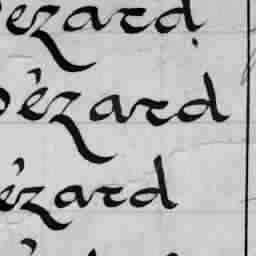 ezard
ézard
ézard